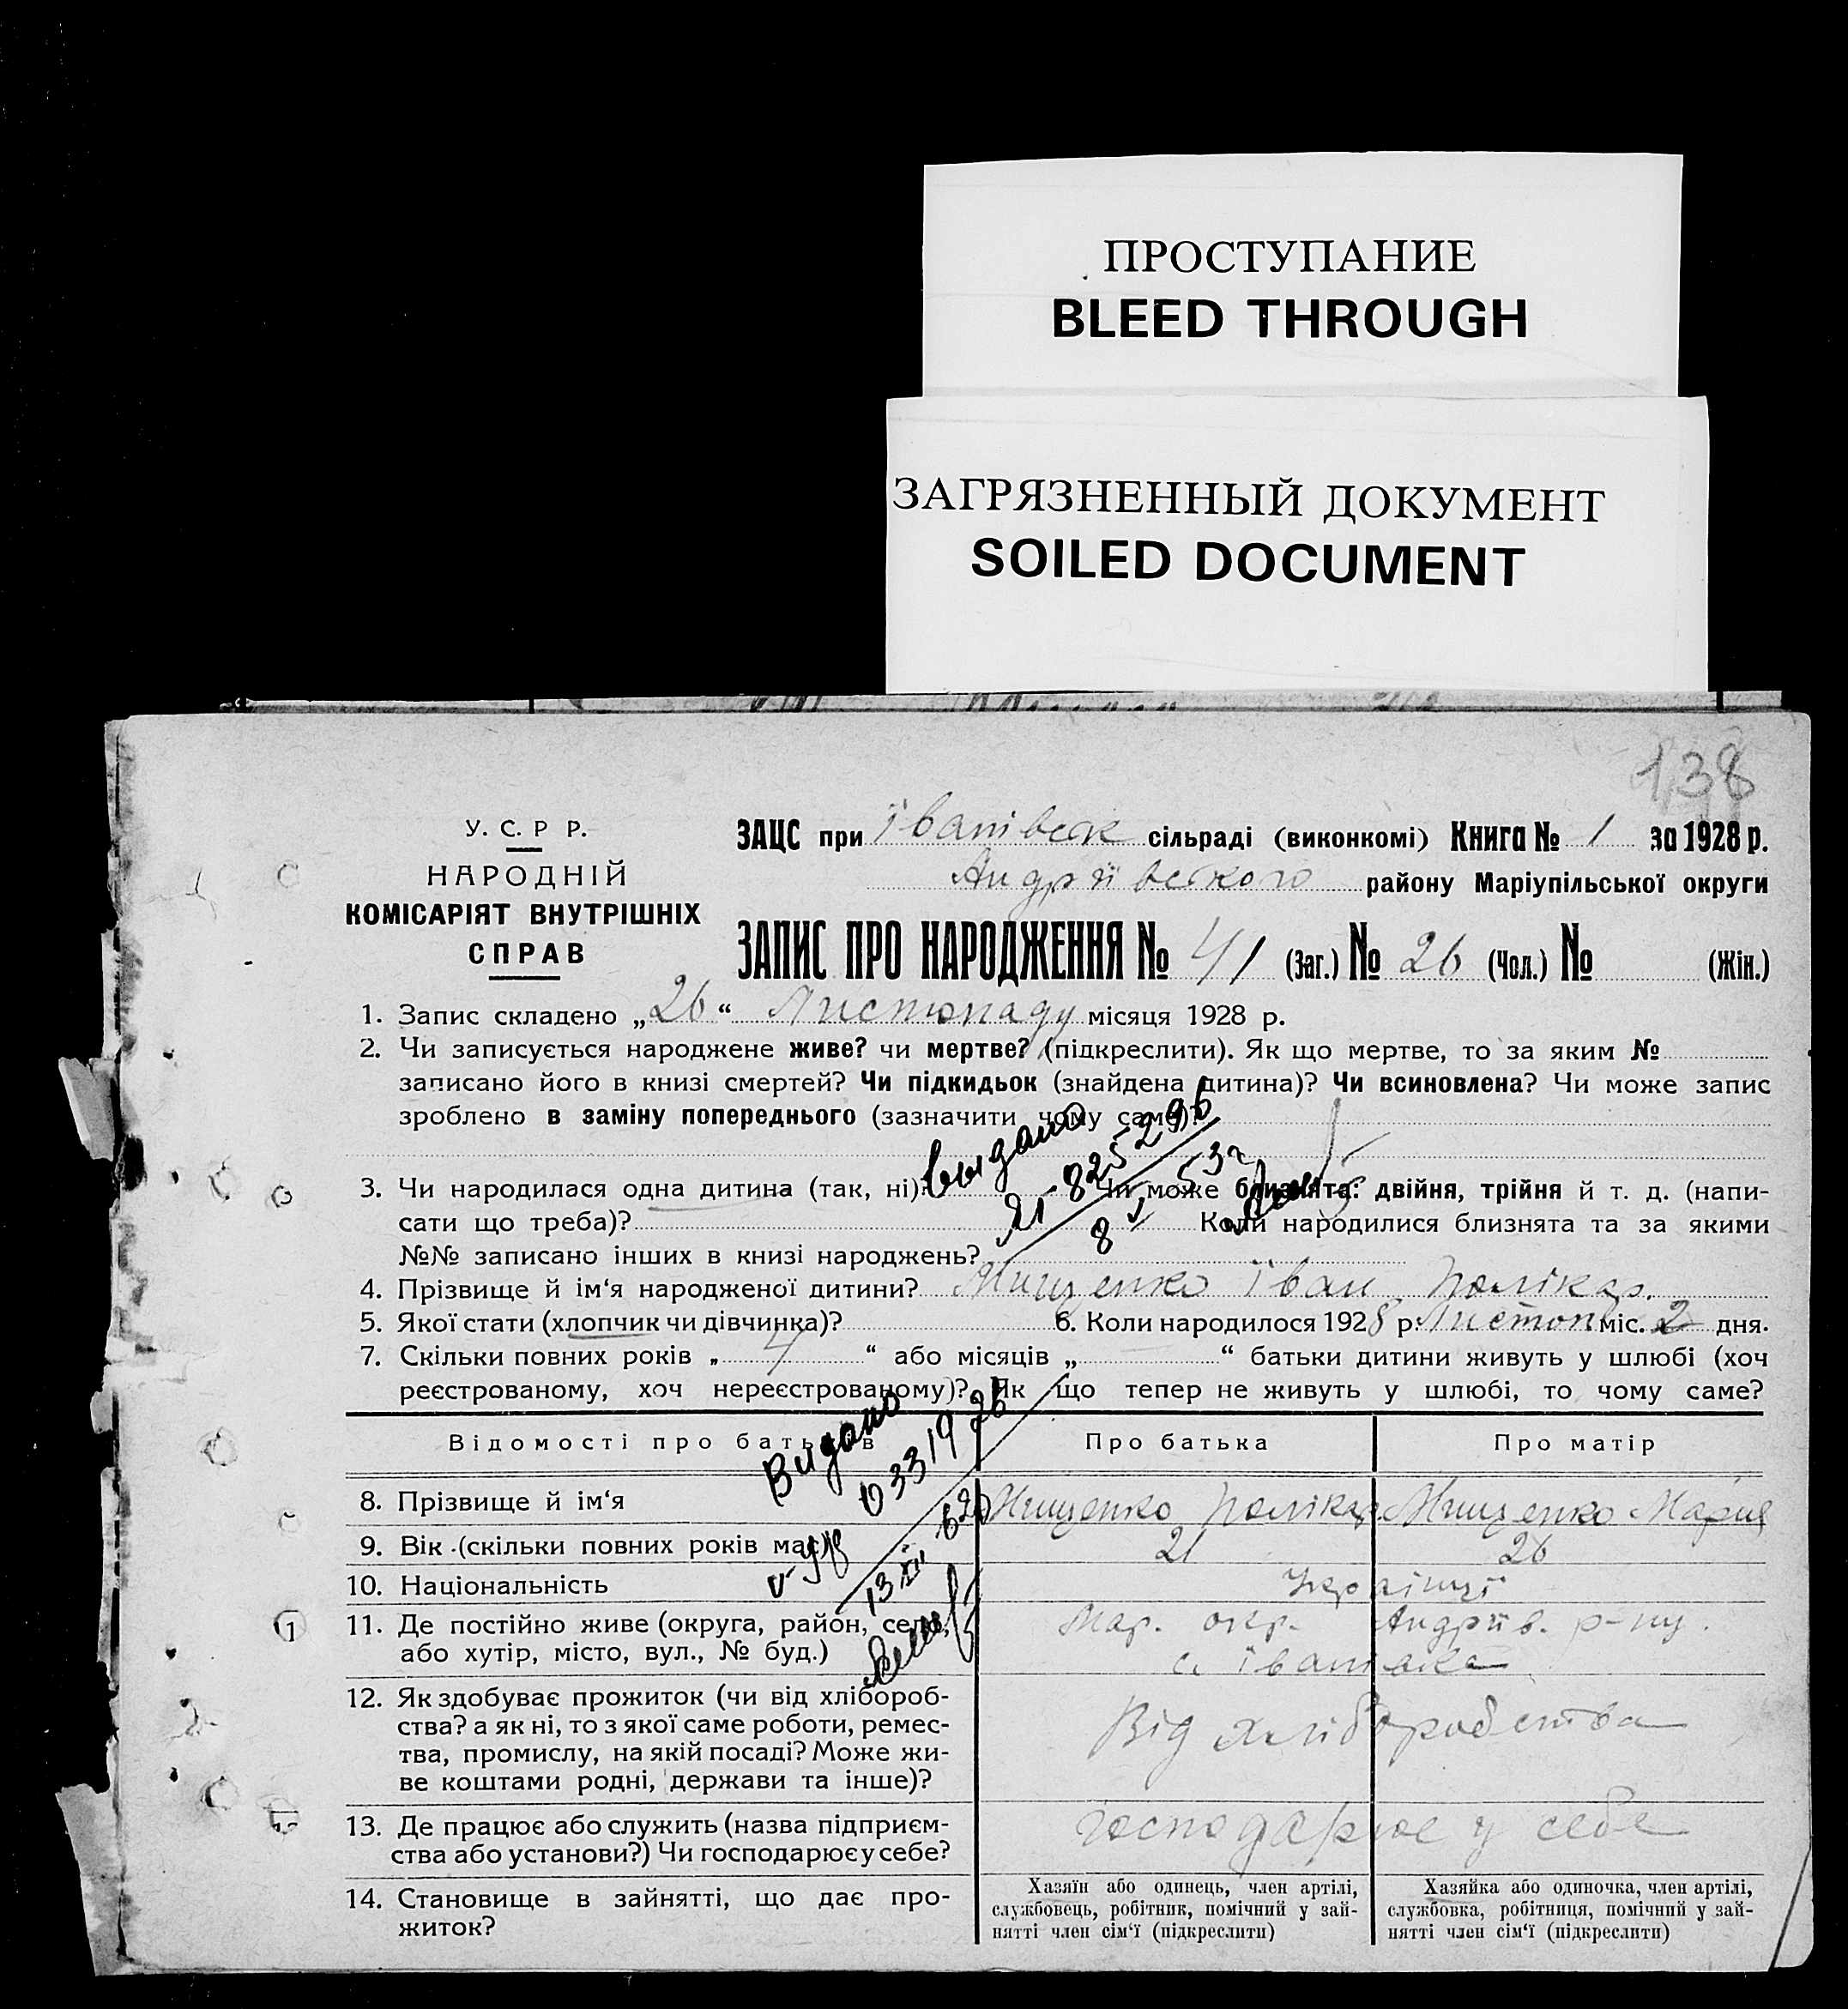 ПРОСТУПАНИЕ
BLEED THROUGH
ЗАГРЯЗНЕННЫЙ ДОКУМЕНТ
SOILED DOCUMENT
138
У. С. Р Р.
НАРОДНІЙ
КОМІСАРІЯТ ВНУТРІШНІХ
СПРАВ
ЗАЦС при Іванівськ сільраді (виконкомі) Книга № 1 за 1928 р.
Андріївського району Маріупільської округи
ЗАПИС ПРО НАРОДЖЕННЯ № 41 (Заг.) № 26 (Чол.) № (Жін.)
1. Запис складено „26“ Листопаду місяця 1928 р.
2. Чи записується народжене живе? чи мертве? (підкреслити). Як що мертве, то за яким №
записано його в книзі смертей? Чи підкидьок (знайдена дитина)? Чи всиновлена? Чи може запис
зроблено в заміну попереднього (зазначити чому саме)?
выдано
3. Чи народилася одна дитина (так, ні)? Чи може близнята: двійня, трійня й т. д. (напи-
сати що треба)? Коли народилися близнята та за якими
№№ записано інших в книзі народжень?
4. Прізвище й ім‘я народженої дитини? Мищенко Іван Полікар.
5. Якої стати (хлопчик чи дівчинка)? 6. Коли народилося 1928 р. Листоп міс. 2 дня.
7. Скільки повних років „ 4 “ або місяців „ “ батьки дитини живуть у шлюбі (хоч
реєстрованому, хоч нереєстрованому)? Як що тепер не живуть у шлюбі, то чому саме?
Видано
Відомості про батьків Про батька Про матір
8. Прізвище й ім‘я Мищенко Полікар. Мищенко Мария
9. Вік (скільки повних років має) 21 26
10. Національність Українці
11. Де постійно живе (округа, район, село, Мар. окр. Андріїв. р-ну.
або хутір, місто, вул., № буд.) с. Іванівка
12. Як здобуває прожиток (чи від хлібороб-
ства? а як ні, то з якої саме роботи, ремес- Від хліборобства
тва, промислу, на якій посаді? Може жи-
ве коштами родні, держави та інше)?
13. Де працює або служить (назва підприєм- господарює у себе
ства або установи?) Чи господарює у себе?
14. Становище в зайнятті, що дає про-
житок?
Хазяїн або одинець, член артілі,
службовець, робітник, помічний у зай-
нятті член сім‘ї (підкреслити)
Хазяйка або одиночка, член артілі,
службовка, робітниця, помічний у зай-
нятті член сім‘ї (підкреслити)